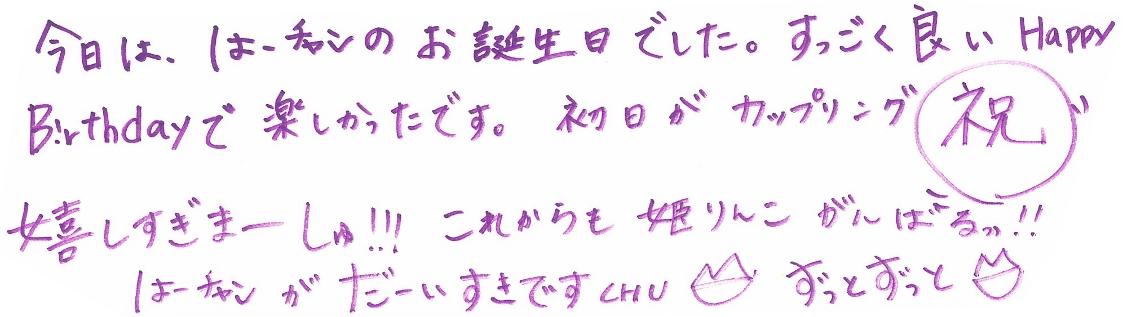 今日は、はーチャンのお誕生日でした。すっごく良いHappy
Birthdayで楽しかったです。初日がカップリング祝
嬉しすぎまーしゅ!!! これからも姫りんこがんばるっ!!
はーチャンがだーいすきですCHU ずっとずっと